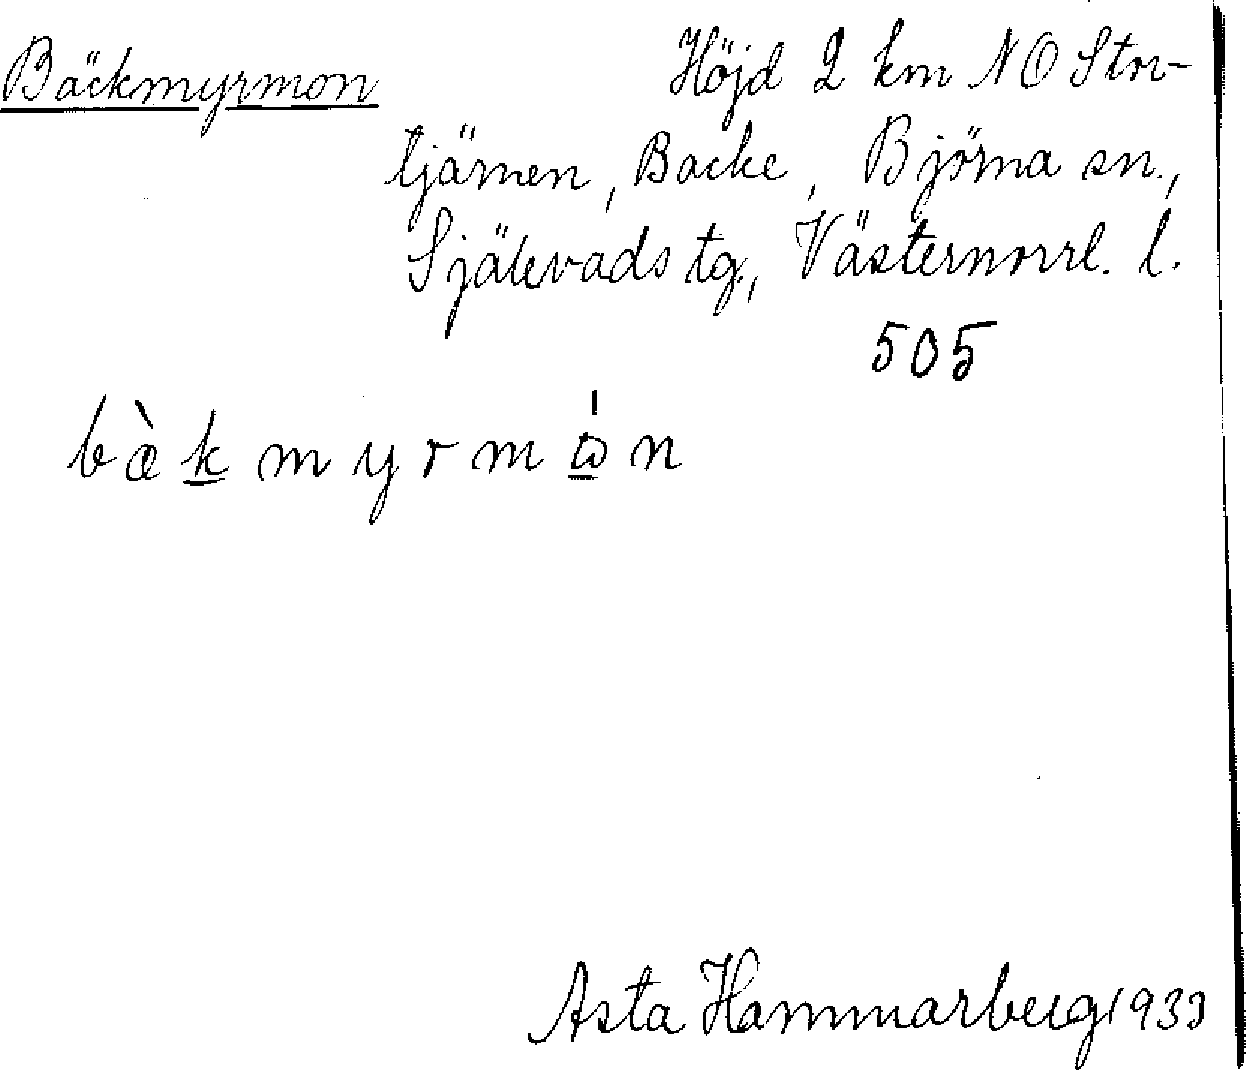 Bäckmyrmon Höjd 2 km NO Stor-
tjärnen, Backe, Björna sn.,
Själevads tg., Västernorrl. l.
505
bæ̀k̲myrmώ̲n
Asta Hammarberg 1933